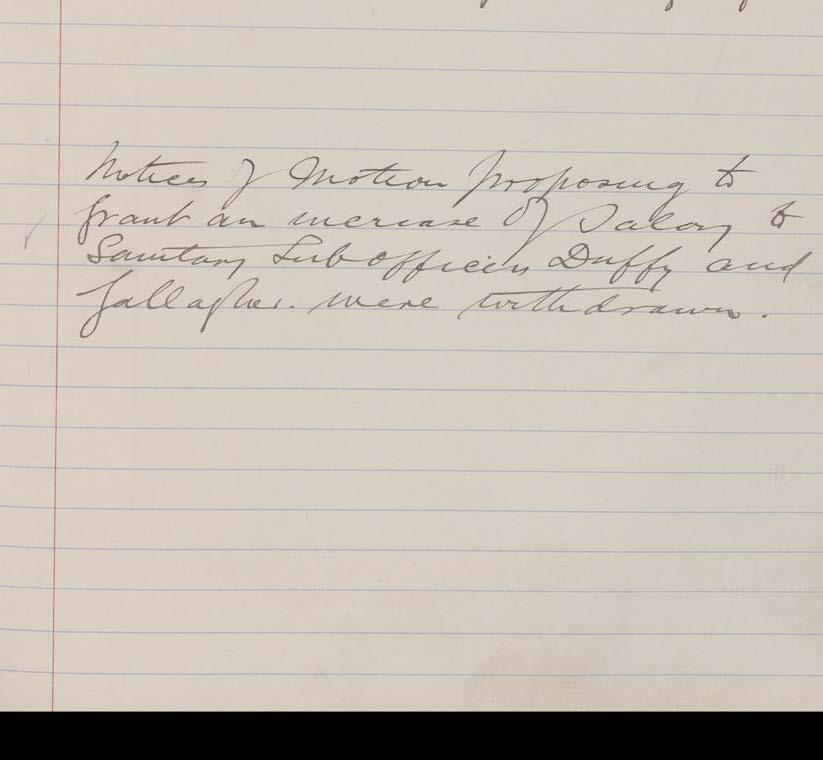 Notices of Motion proposing to
grant an increase of Salary to
Sanitary Sub officers Duffy and
Gallagher. were withdrawn.